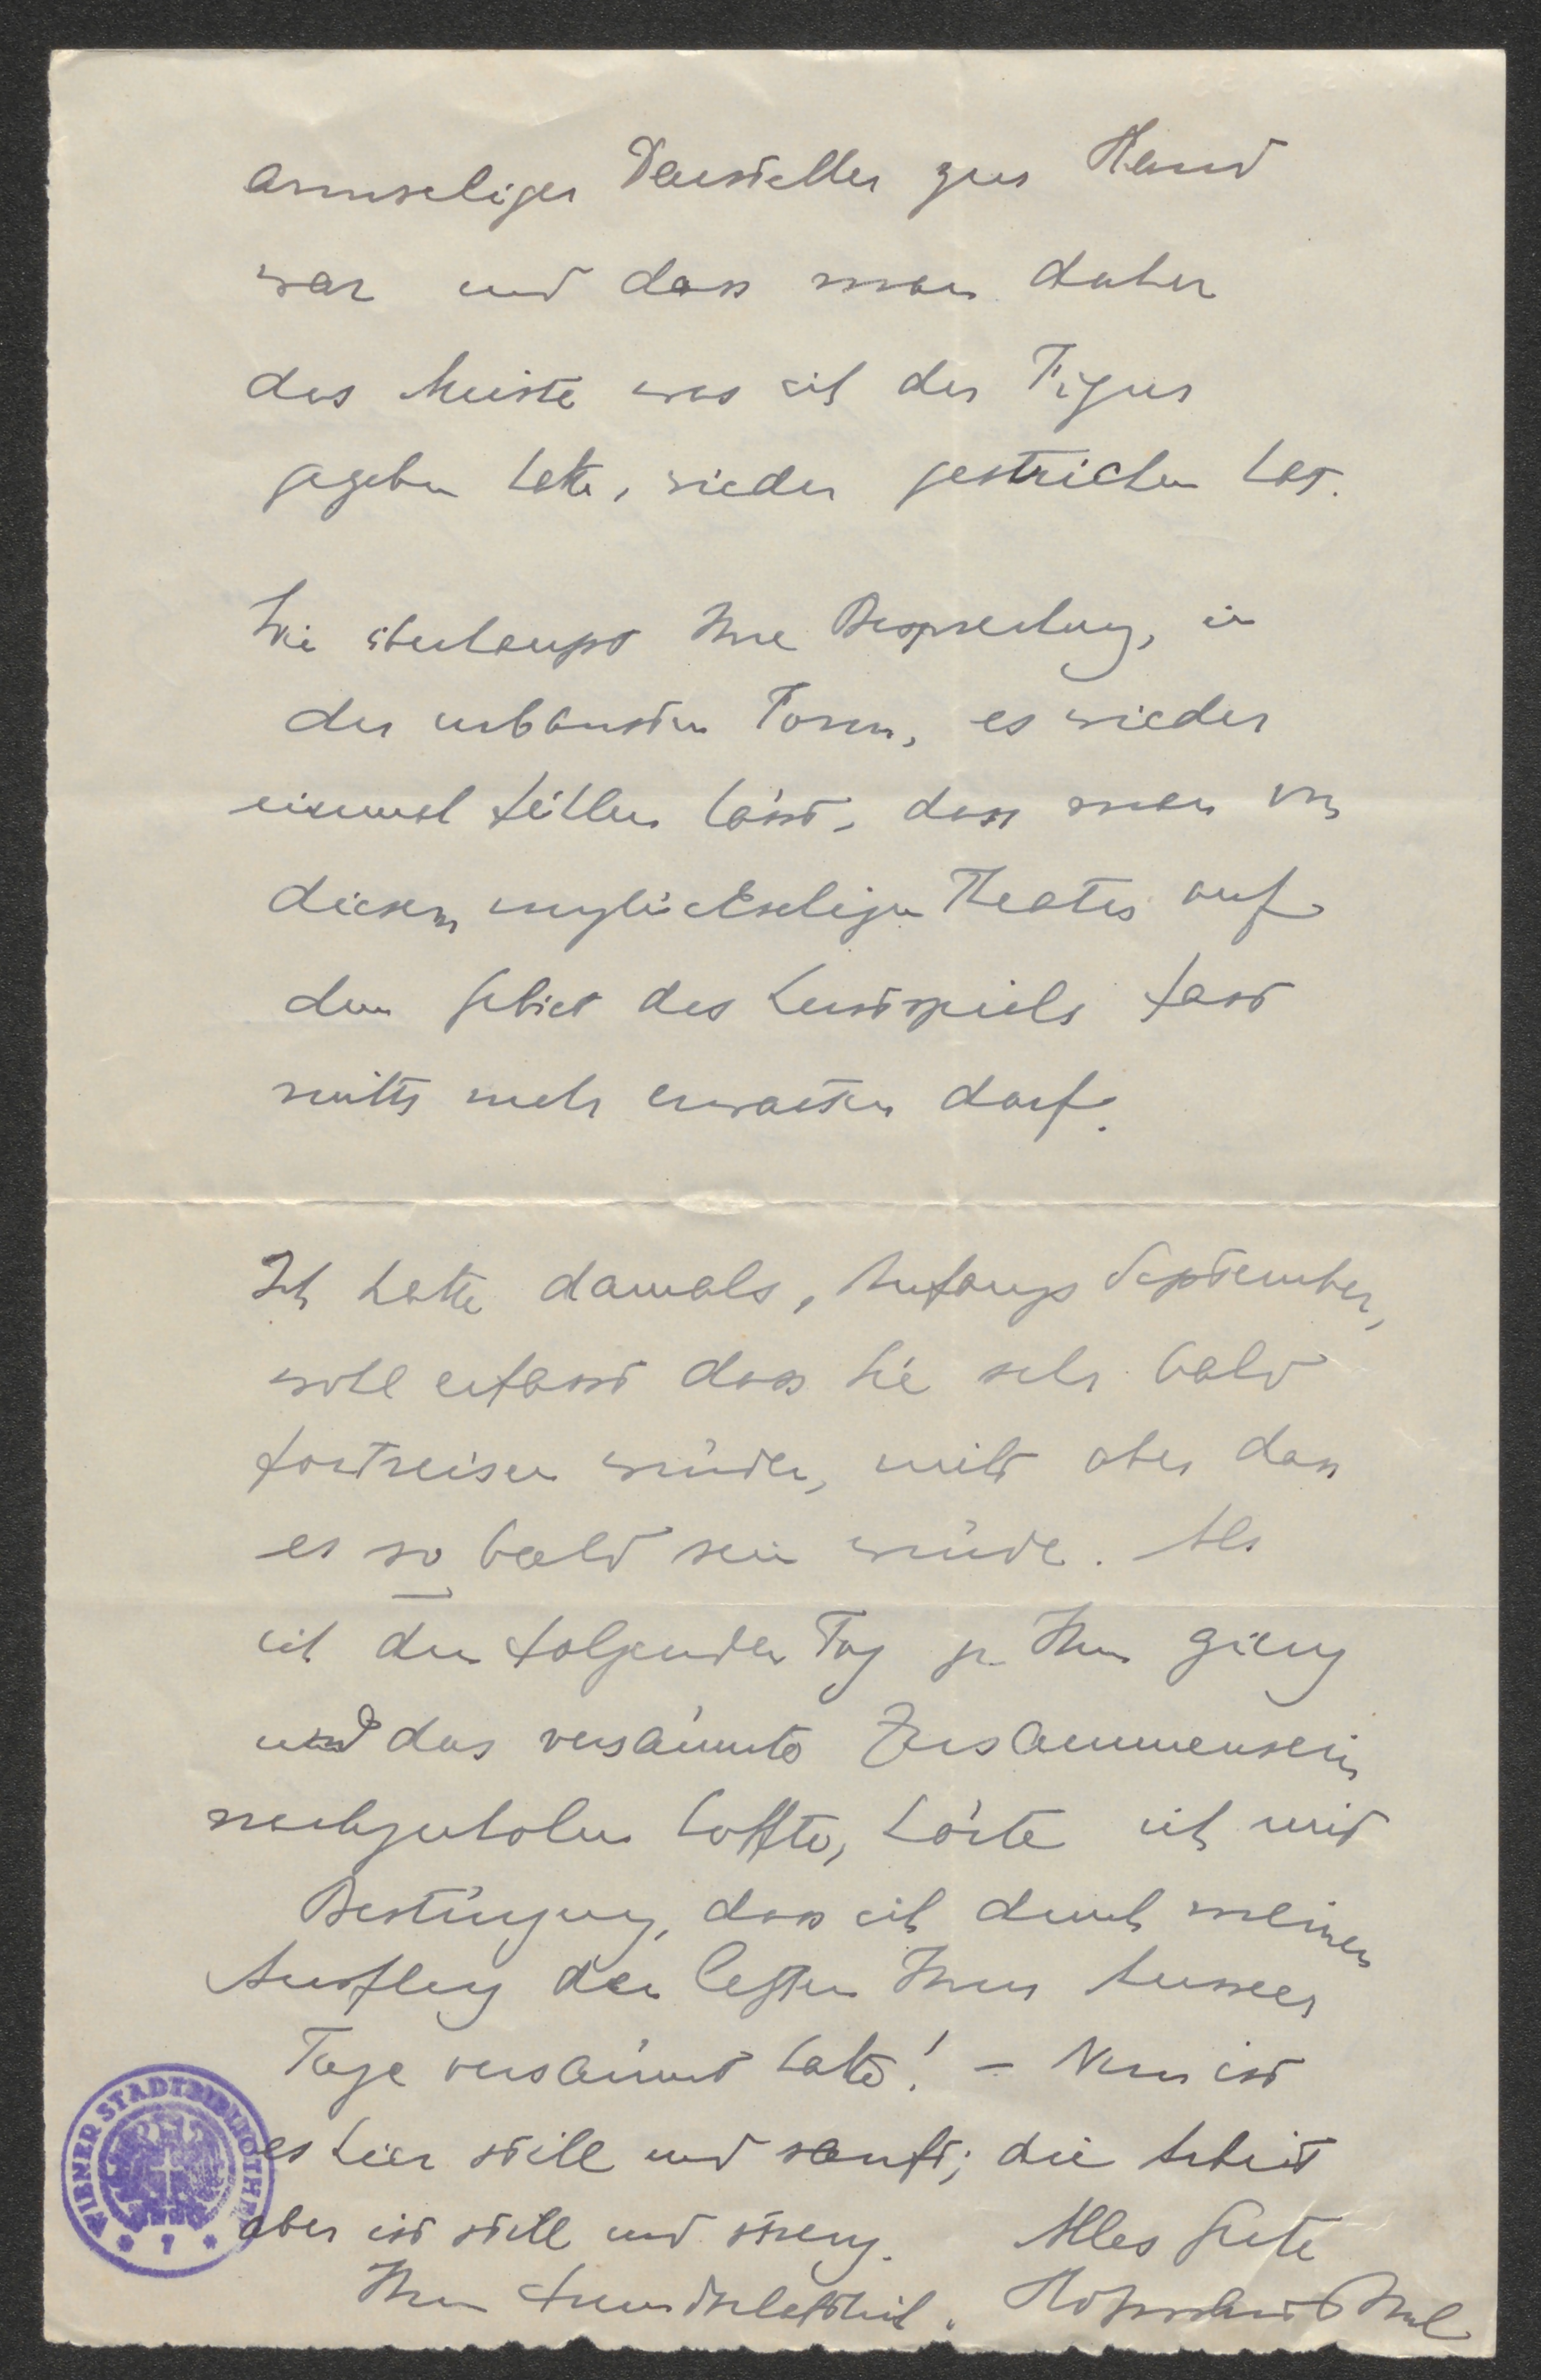 armseliger Darsteller zur Hand
war und dass man daher
das Meiste was ich der Figur
gegeben hatte, wieder gestrichen hat.
Wie überhaupt Ihre Besprechung, in
der urbansten Form, es wieder
einmal fühlen lässt, dass man von
diesem unglückseligen Theater auf
dem Gebiet des Lustspiels fast
nichts mehr erwarten darf.
Ich hatte damals, Anfangs September,
wohl erfasst dass Sie sehr bald
fortreisen würden, nicht aber dass
es so bald sein würde. Als
ich den folgenden Tag zu Ihnen gieng
und das versäumte Zusammensein
nachzuholen hoffte, hörte ich mit
Bestürzung, dass ich durch meinen
Ausflug den letzten Ihrer Ausseer
Tage versäumt hatte! – Nun ist
es hier still und sanft; die Arbeit
aber ist still und streng. Alles Gute
Ihr freundschaftlich. Hofmannsthal
WIENER STADTBIBLIOTHEK
* 7 *